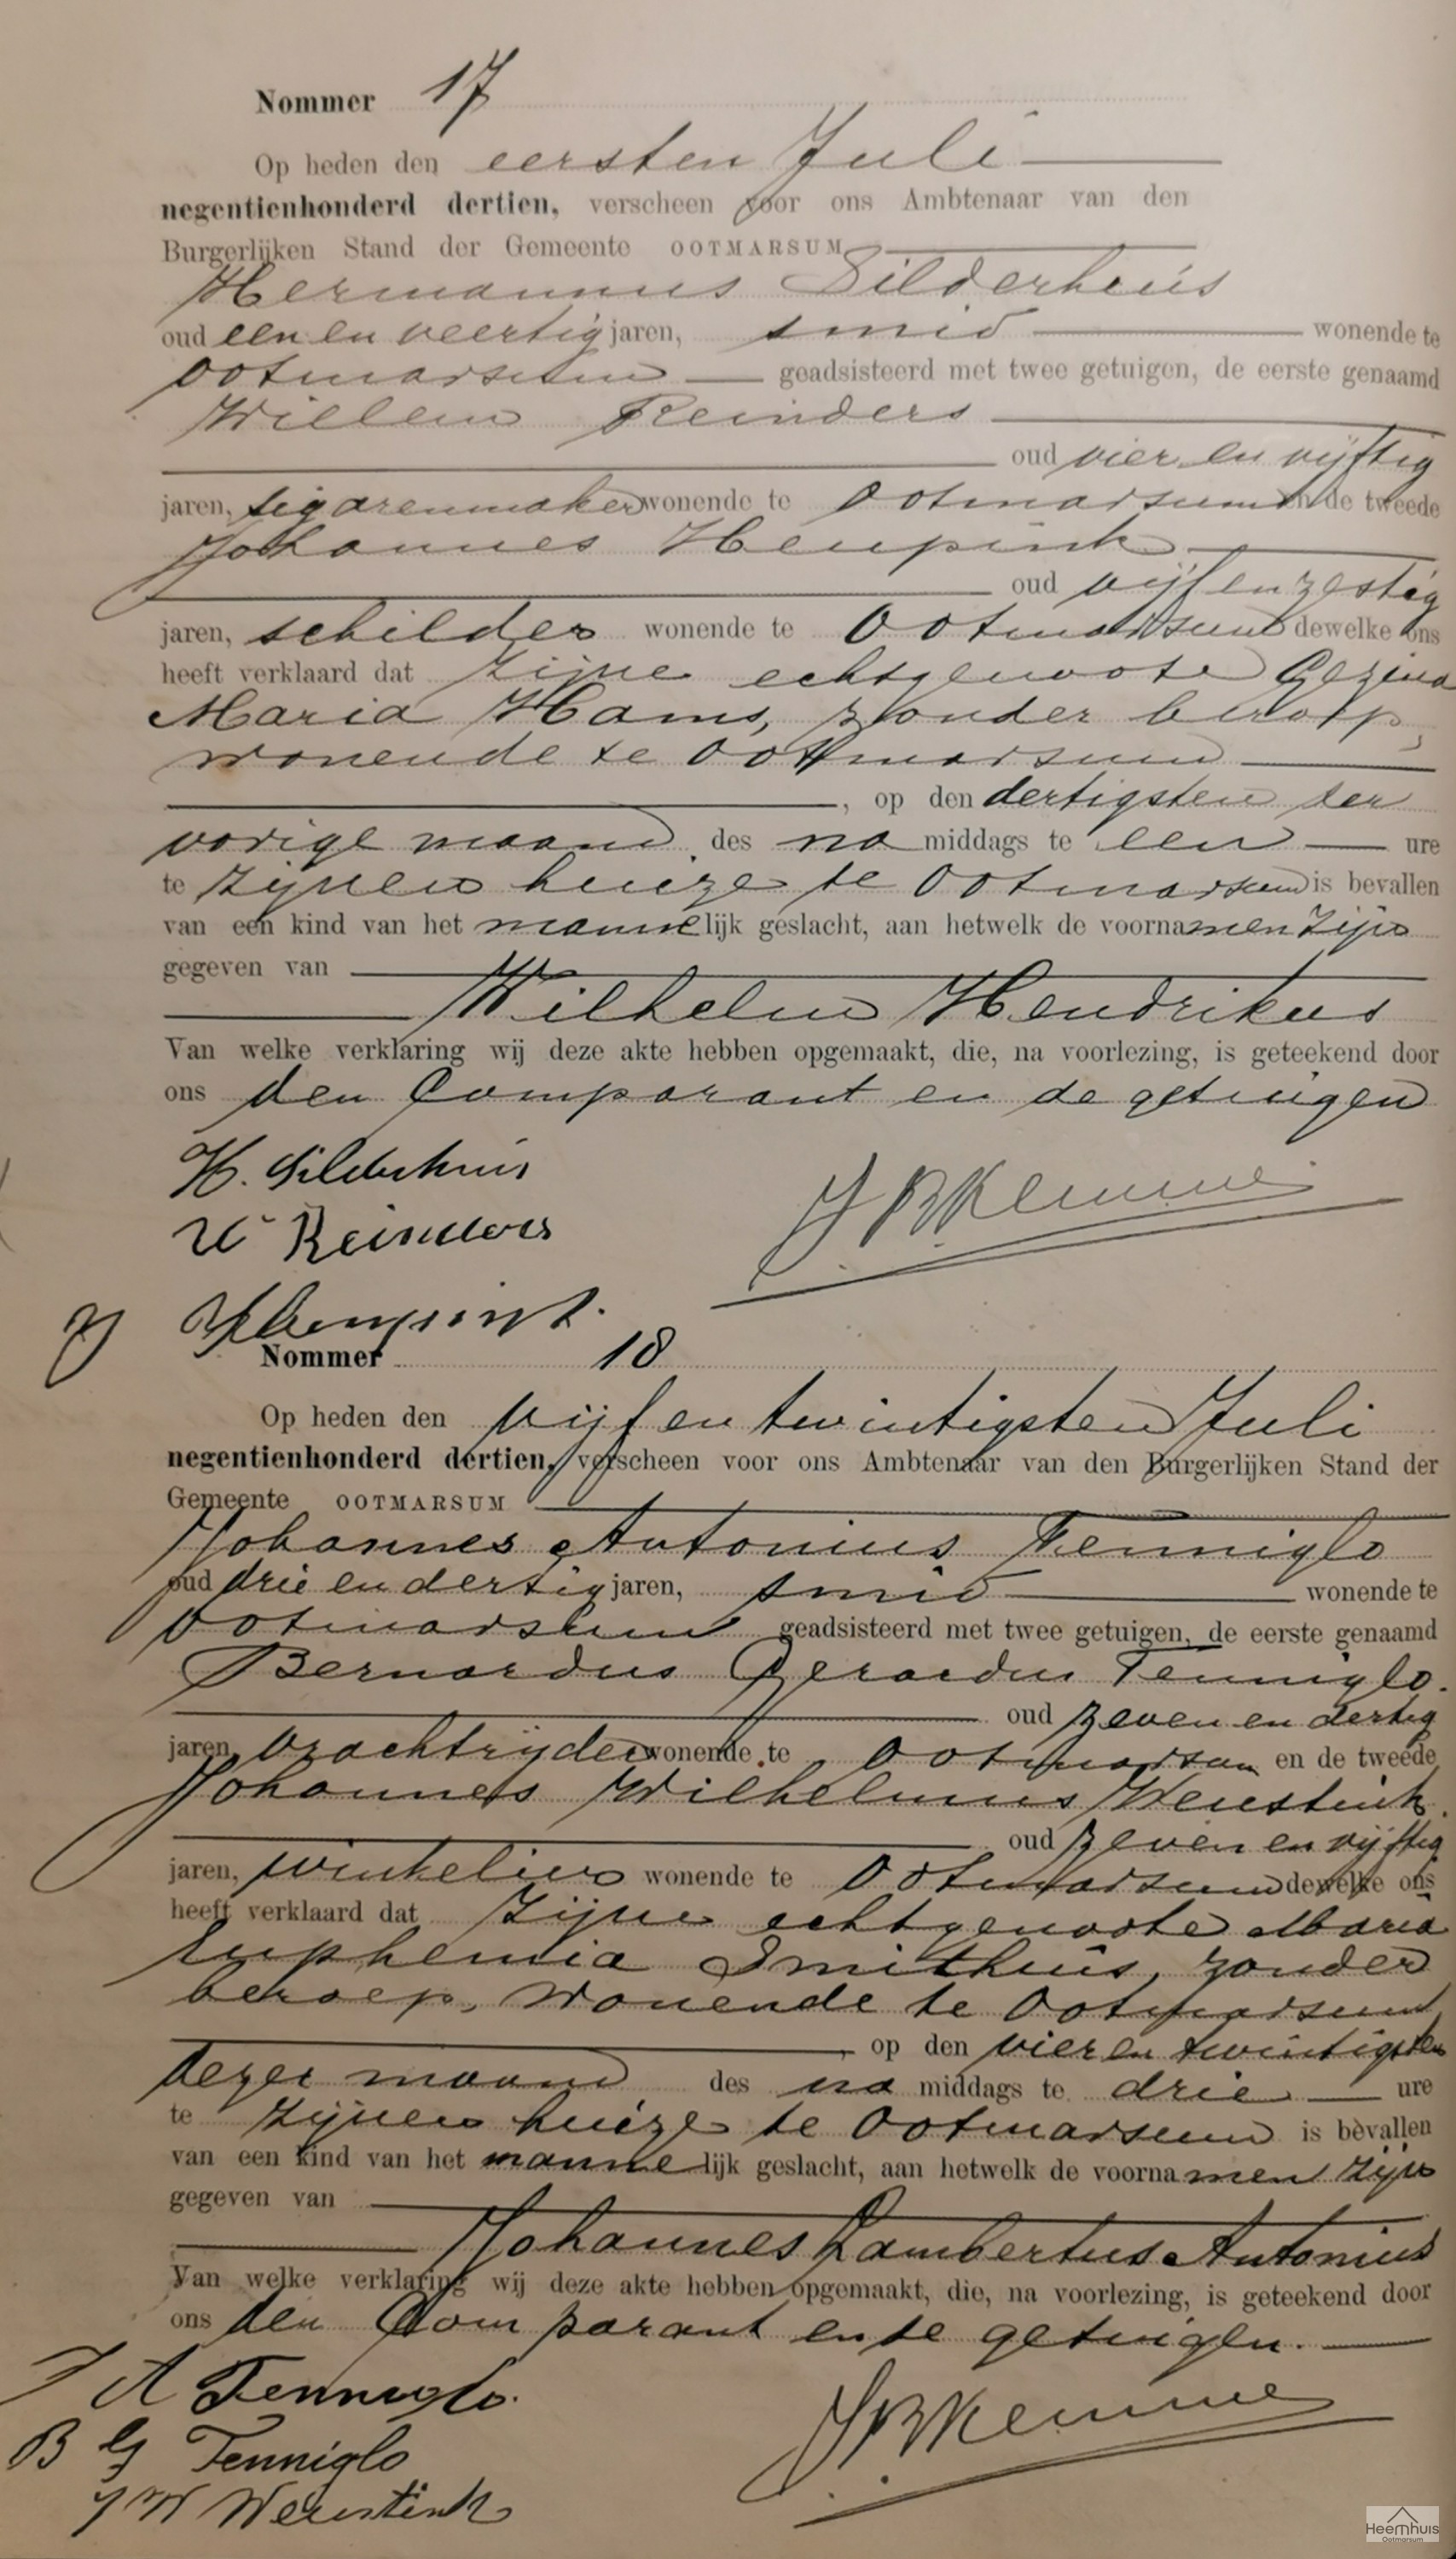 Nommer 17
Op heden den eersten Juli
negentienhonderd dertien, verscheen voor ons Ambtenaar van den
Burgerlijken Stand der Gemeente OOTMARSUM
Hermannus Silderhuis
oud een en veertig jaren, smid wonende te
Ootmarsum geadsisteerd met twee getuigen, de eerste genaamd
Willem Reinders
oud vier en vijftig
jaren, sigarenmaker wonende te Ootmarsum en de tweede
Johannes Heupink
oud vijf en zestig
jaren, schilder wonende te Ootmarsum dewelke ons
heeft verklaard dat zijne echtgenoote Gezina
Maria Hams, zonder beroep,
wonende te Ootmarsum
, op den dertigsten der
vorige maand des na middags te een ure
te zijnen huize te Ootmarsum is bevallen
van een kind van het mannelijk geslacht, aan hetwelk de voornamen zijn
gegeven van
Wilhelm Hendrikus
Van welke verklaring wij deze akte hebben opgemaakt, die, na voorlezing, is geteekend door
ons den Comparant en de getuigen
H. Silderhuis
W Reinders
JBKemme
J Heupink.
Nommer 18
Op heden den vijf en twintigsten Juli
negentienhonderd dertien, verscheen voor ons Ambtenaar van den Burgerlijken Stand der
Gemeente OOTMARSUM
Johannes Antonius Tenniglo
oud drie en dertig jaren, smid wonende te
Ootmarsum geadsisteerd met twee getuigen, de eerste genaamd
Bernardus Gerardus Tenniglo.
oud zeven en dertig
jaren, vrachtrijder wonende te Ootmarsum en de tweede
Johannes Wilhelmus Weustink
oud zeven en vijftig
jaren, winkelier wonende te Ootmarsum dewelke ons
heeft verklaard dat zijne echtgenoote Maria
Euphemia Smithuis, zonder
beroep, wonende te Ootmarsum
, op den vier en twintigsten
dezer maand des na middags te drie ure
te zijnen huize te Ootmarsum is bevallen
van een kind van het mannelijk geslacht, aan hetwelk de voornamen zijn
gegeven van
Johannes Lambertus Antonius
Van welke verklaring wij deze akte hebben opgemaakt, die, na voorlezing, is geteekend door
ons den Comparant en de getuigen.
J A Tenniglo.
JBKemme
B G Tenniglo
J W Weustink
Heemhuis
Ootmarsum